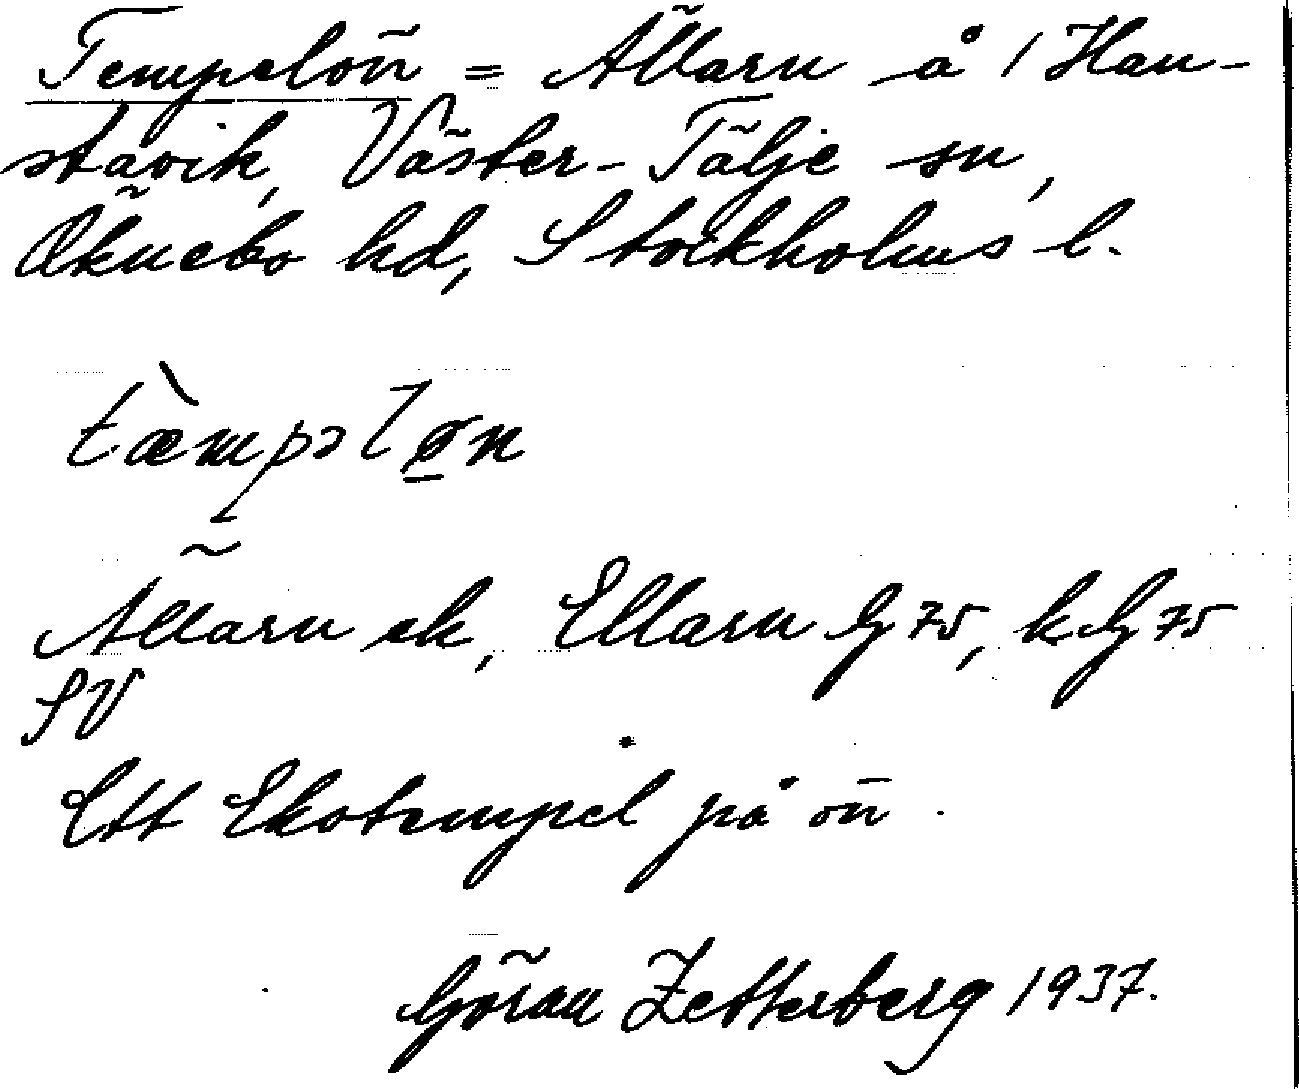 Tempelön = Ällaru å / Hau-
stavik, Väster-Tälje sn,
Öknebo hd, Stockholms l.
tæ̀mpəlø̱n
Ällaru ek, Ellaru G 75, kG 75
SV
Ett Ekotempel på ön.
Göran Zetterberg 1937.